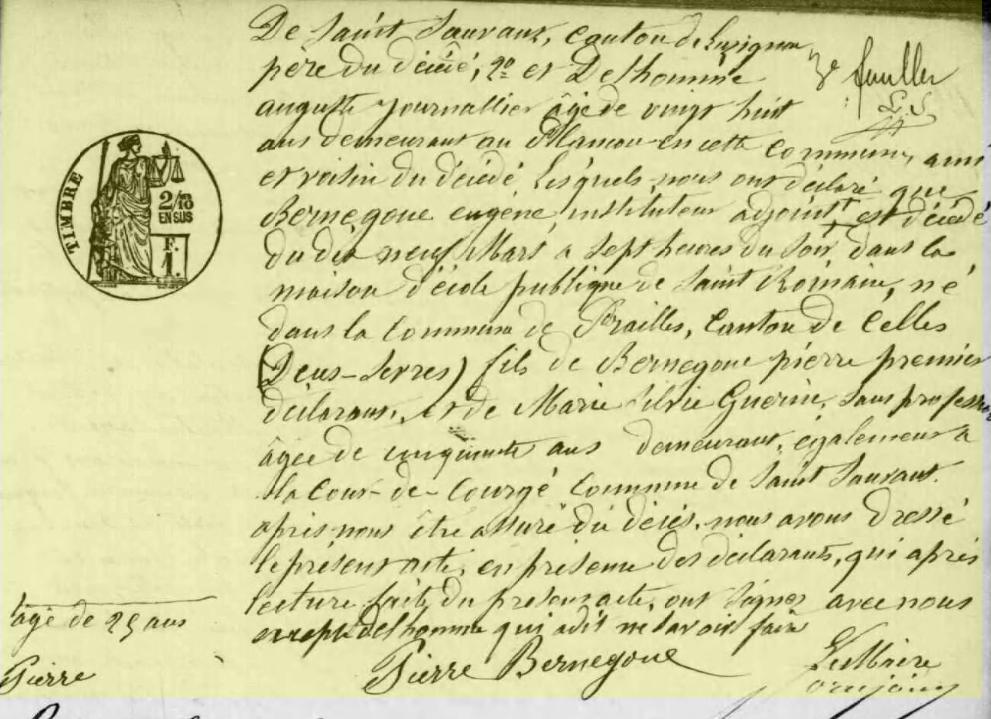 De Saint Sauvant, canton de Lusignan
père du décédé, 2º et Delhomme
3e feuillet
auguste journallier âgé de vingt huit
ans demeurant au en cette commune, ami
et voisin du décédé, lesquels nous ont déclaré que
Bernegoue eugène instituteur adjoint est décédé
du dix neuf Mars a sept heures du soir dans la
maison d'école publique de Saint Romain, né
dans la commune de Prailles, canton de Celles
(Deux-Sevres) fils de Bernegoue pierre premier
déclarant, et de Marie Silvie Guerin, sans profession
âgée de cinquante ans demeurant également a
la Cour-de-Courgé commune de Saint Sauvant.
après nous être assuré du décès, nous avons dressé
le présent acte, en présence des déclarants, qui après
lecture faite du présent acte, ont signer avec nous
excepté delhomme qui a dit ne savoir faire
Pierre Bernegoue
Le Maire
TIMBRE
2/10
EN SUS
F.
1.
âgé de 25 ans
Pierre